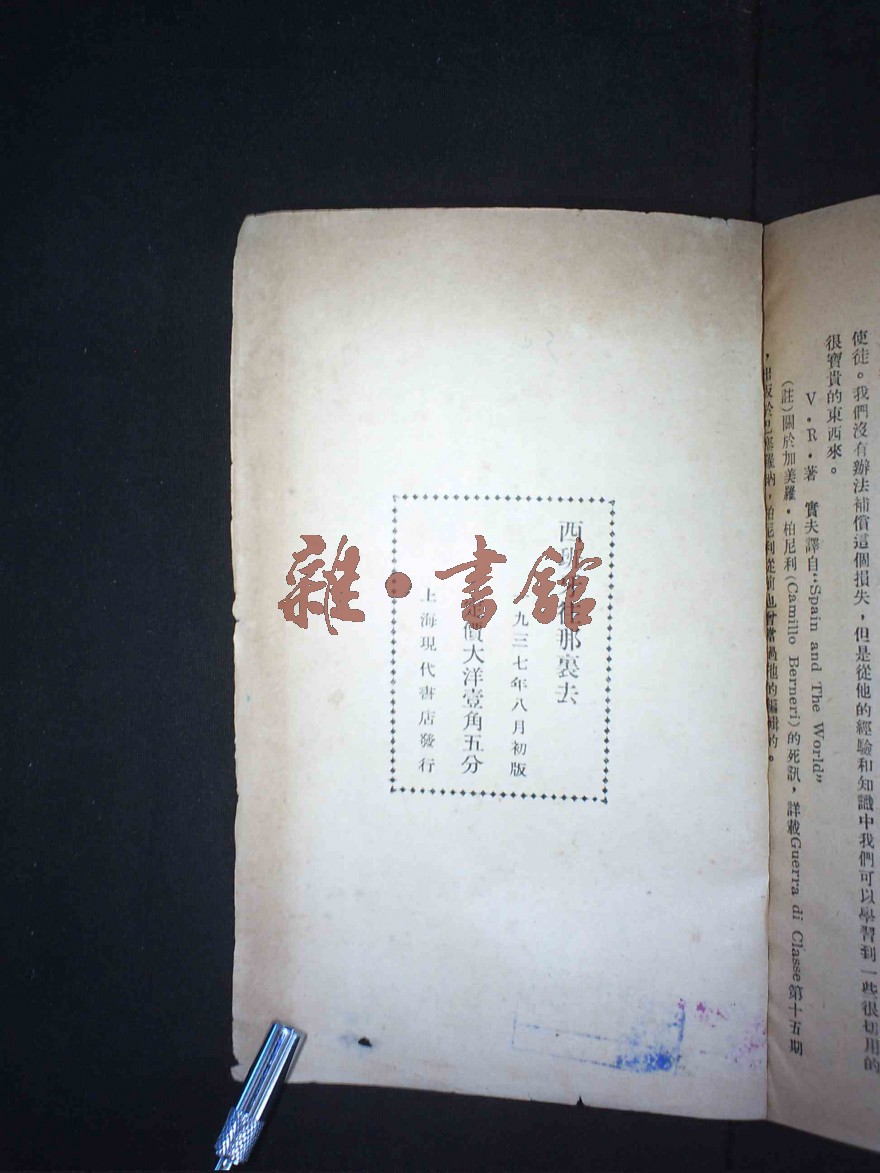 使徒。我們沒有辦法補償這個損失，但是從他的經驗和知識中我們可以學習到一些很切用的
很寶貴的東西來。
V．R．著　實夫譯自“Spain and The World”
（註）關於加美羅．柏尼利（Camillo Berneri）的死訊，詳載Guerra di Classe第十五期
，出版於巴塞羅納，柏尼利從前也曾當過他的編輯的。
西 往那裏去
九三七年八月初版
價大洋壹角五分
上海現代書店發行
雜·書館